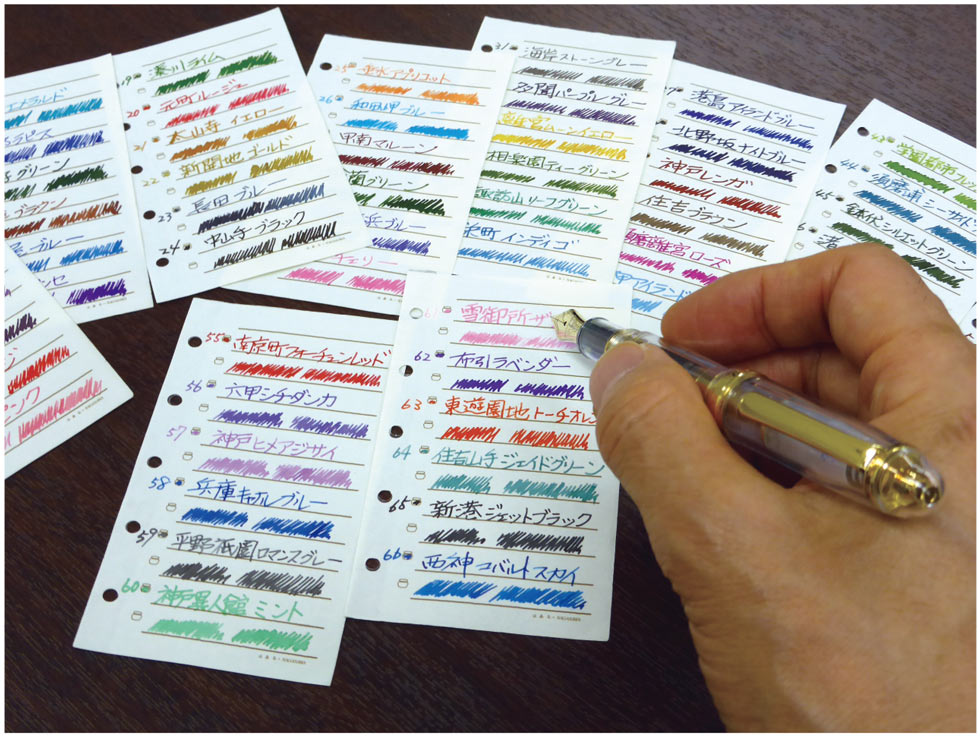 エメラルド
ラピス
グリーン
ブラウン
ブルー
セ
19 湊川ライム
20 元町ルージュ
21 本山寺 イエロー
22 新開地ゴールド
23 長田 ブルー
24 中山手 ブラック
25 垂水アプリコット
26 和田岬ブルー
甲南マルーン
蘭グリーン
浜ブルー
チェリー
31 海岸ストーングレー
多聞パープルグレー
離宮ムーンイエロー
相楽園ティーグリーン
諏訪山リーフグリーン
栄町 インディゴ
7 港島アイランドブルー
北野坂ナイトブルー
神戸レンガ
住吉ブラウン
磨離宮ローズ
甲アイランド
43 学園都市フレ
44 須磨浦シーサイ
45 鉢伏シルエットグリーン
6 港
ジ
ンク
55 南京町フォーチュンレッド
56 六甲シチダンカ
57 神戸ヒメアジサイ
58 兵庫キャナルブルー
59 平野祇園ロマンスグレー
60 神戸異人館 ミント
61 雪御所ザ
62 布引ラベンダー
63 東遊園地トーチオレン
64 住吉山手ジェイドグリーン
65 新港ジェットブラック
66 西神コバルトスカイ